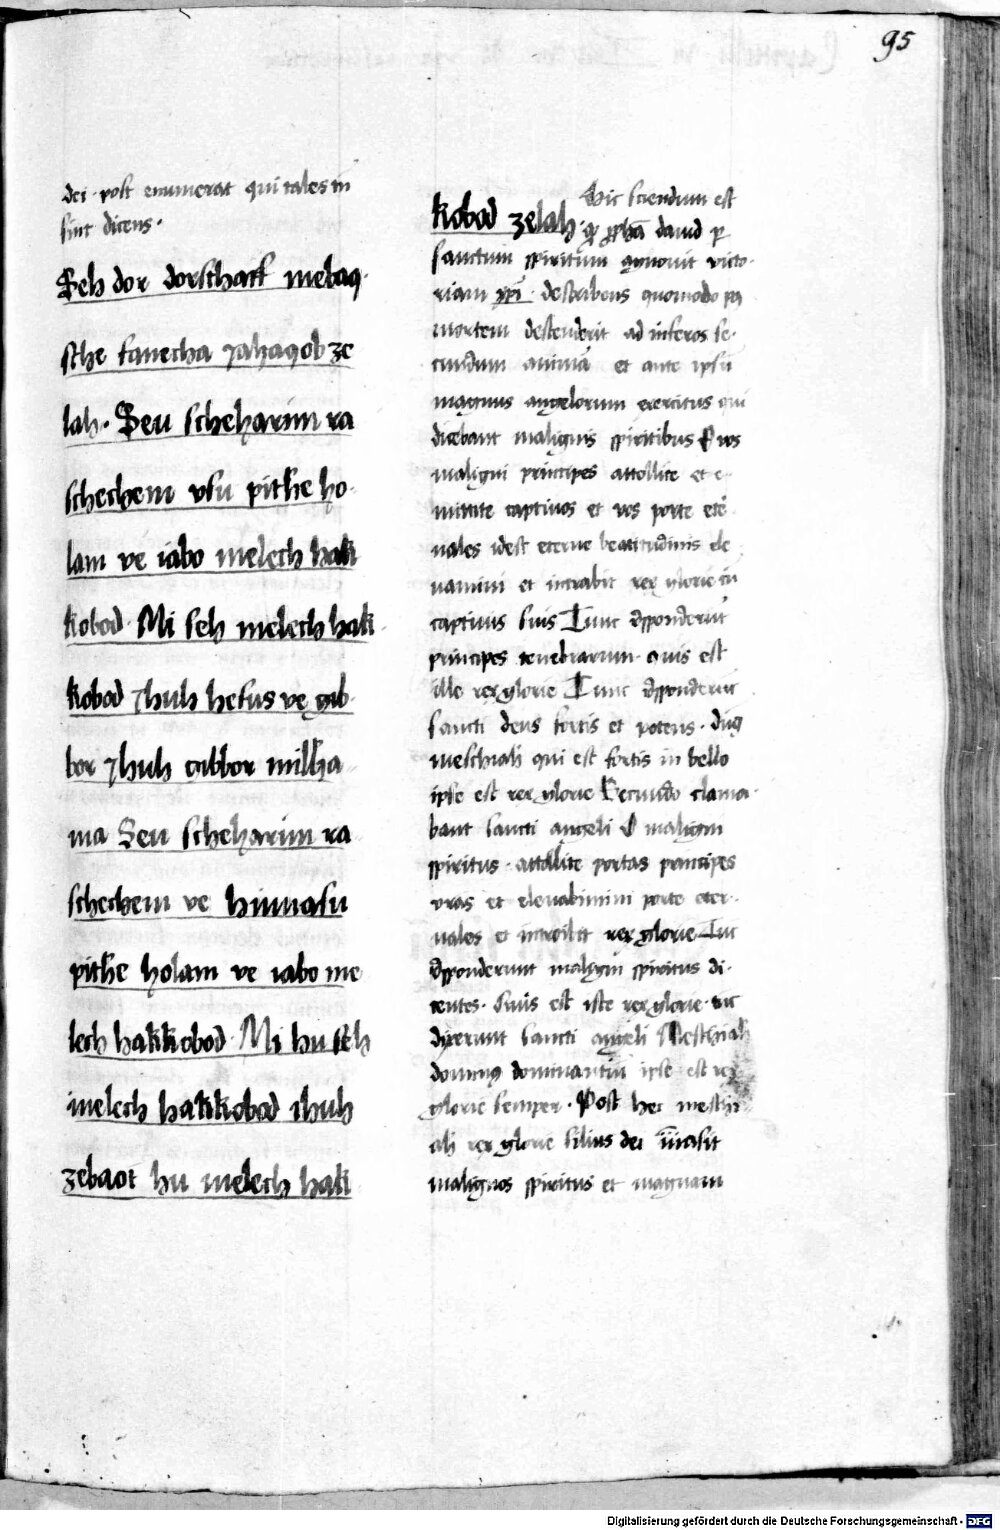 95
dei · post enumerat qui tales in
sint dicens ·
Seh dor dorschaff mebaq·
sche fanecha ɿahaqob ze
lah · Seu scheharim ra
schechem vsu pithe ho
lam ve iabo melech hak
kobod · Mi seh melech hak
kobod ɿhuh hesus ve gib·
bor ɿhuh gibbor milha
ma Seu scheharim ra
schechem ve hinnasu
pithe holam ve iabo me
lech hakkobod · Mi hu seh
melech hakkobod ihuh
zebaot hu melech hak
kobod zelah · Hic sciendum est
ꝙ ꝓpha dauid ꝑ
sanctum spiritum agnouit victo·
riam xpi · describens quomodo pꝰ
mortem descenderit ad inferos se·
cundum animā et ante ipsū
magnus angelorum exercitus qui
dicebant malignis spiritibus O vos
maligni principes attollite et e·
mittite captiuos et vos porte eter
nales idest eterne beatitudinis ele
uamini et intrabit rex glorie cū
captiuis suis Tunc rn̄sponderūt
principes tenebrarum · quis est
ille rex glorie Tunc responderūt
sancti deus fortis et potens · dn̄s
meschiah qui est fortis in bello
ipse est rex glorie Secundo clama·
bant sancti angeli O maligni
spiritus · attollite portas principes
vras et eleuabimini porte eter·
nales et introibit rex glorie Tūc
responderunt maligni spiritus di·
centes · Quis est iste rex glorie · tūc
dixerunt sancti angeli Meschiah
dominꝰ dominantiū ipse est rex
glorie semper · Post hec meschi
ah rex glorie filius dei inuasit
malignos spiritus et magnam
Digitalisierung gefördert durch die Deutsche Forschungsgemeinschaft - DFG